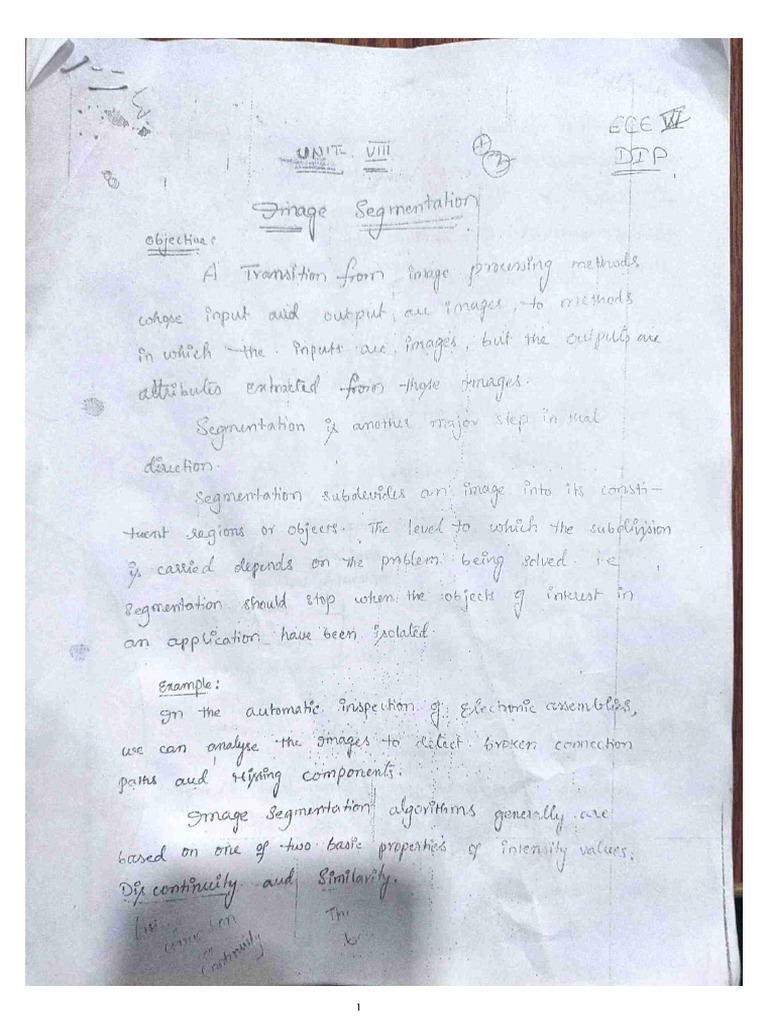 ECE VI
UNIT VIII
DIP
Image Segmentation
Objective:
A Transition from image processing methods
whose input and output are images, to methods
in which the inputs are images, but the outputs are
attributes extracted from those images.
Segmentation is another major step in that
direction.
Segmentation subdevides an image into its consti-
tuent regions or objects. The level to which the subdivision
is carried depends on the problem being solved. i.e,
Segmentation should stop when the objects of interest in
an application have been isolated.
Example:
In the automatic inspection of Electronic assemblies,
we can analyse the images to detect broken connection
paths and Missing components.
Image Segmentation algorithms generally are
based on one of two basic properties of intensity values.
Discontinuity and Similarity.
continuity
1